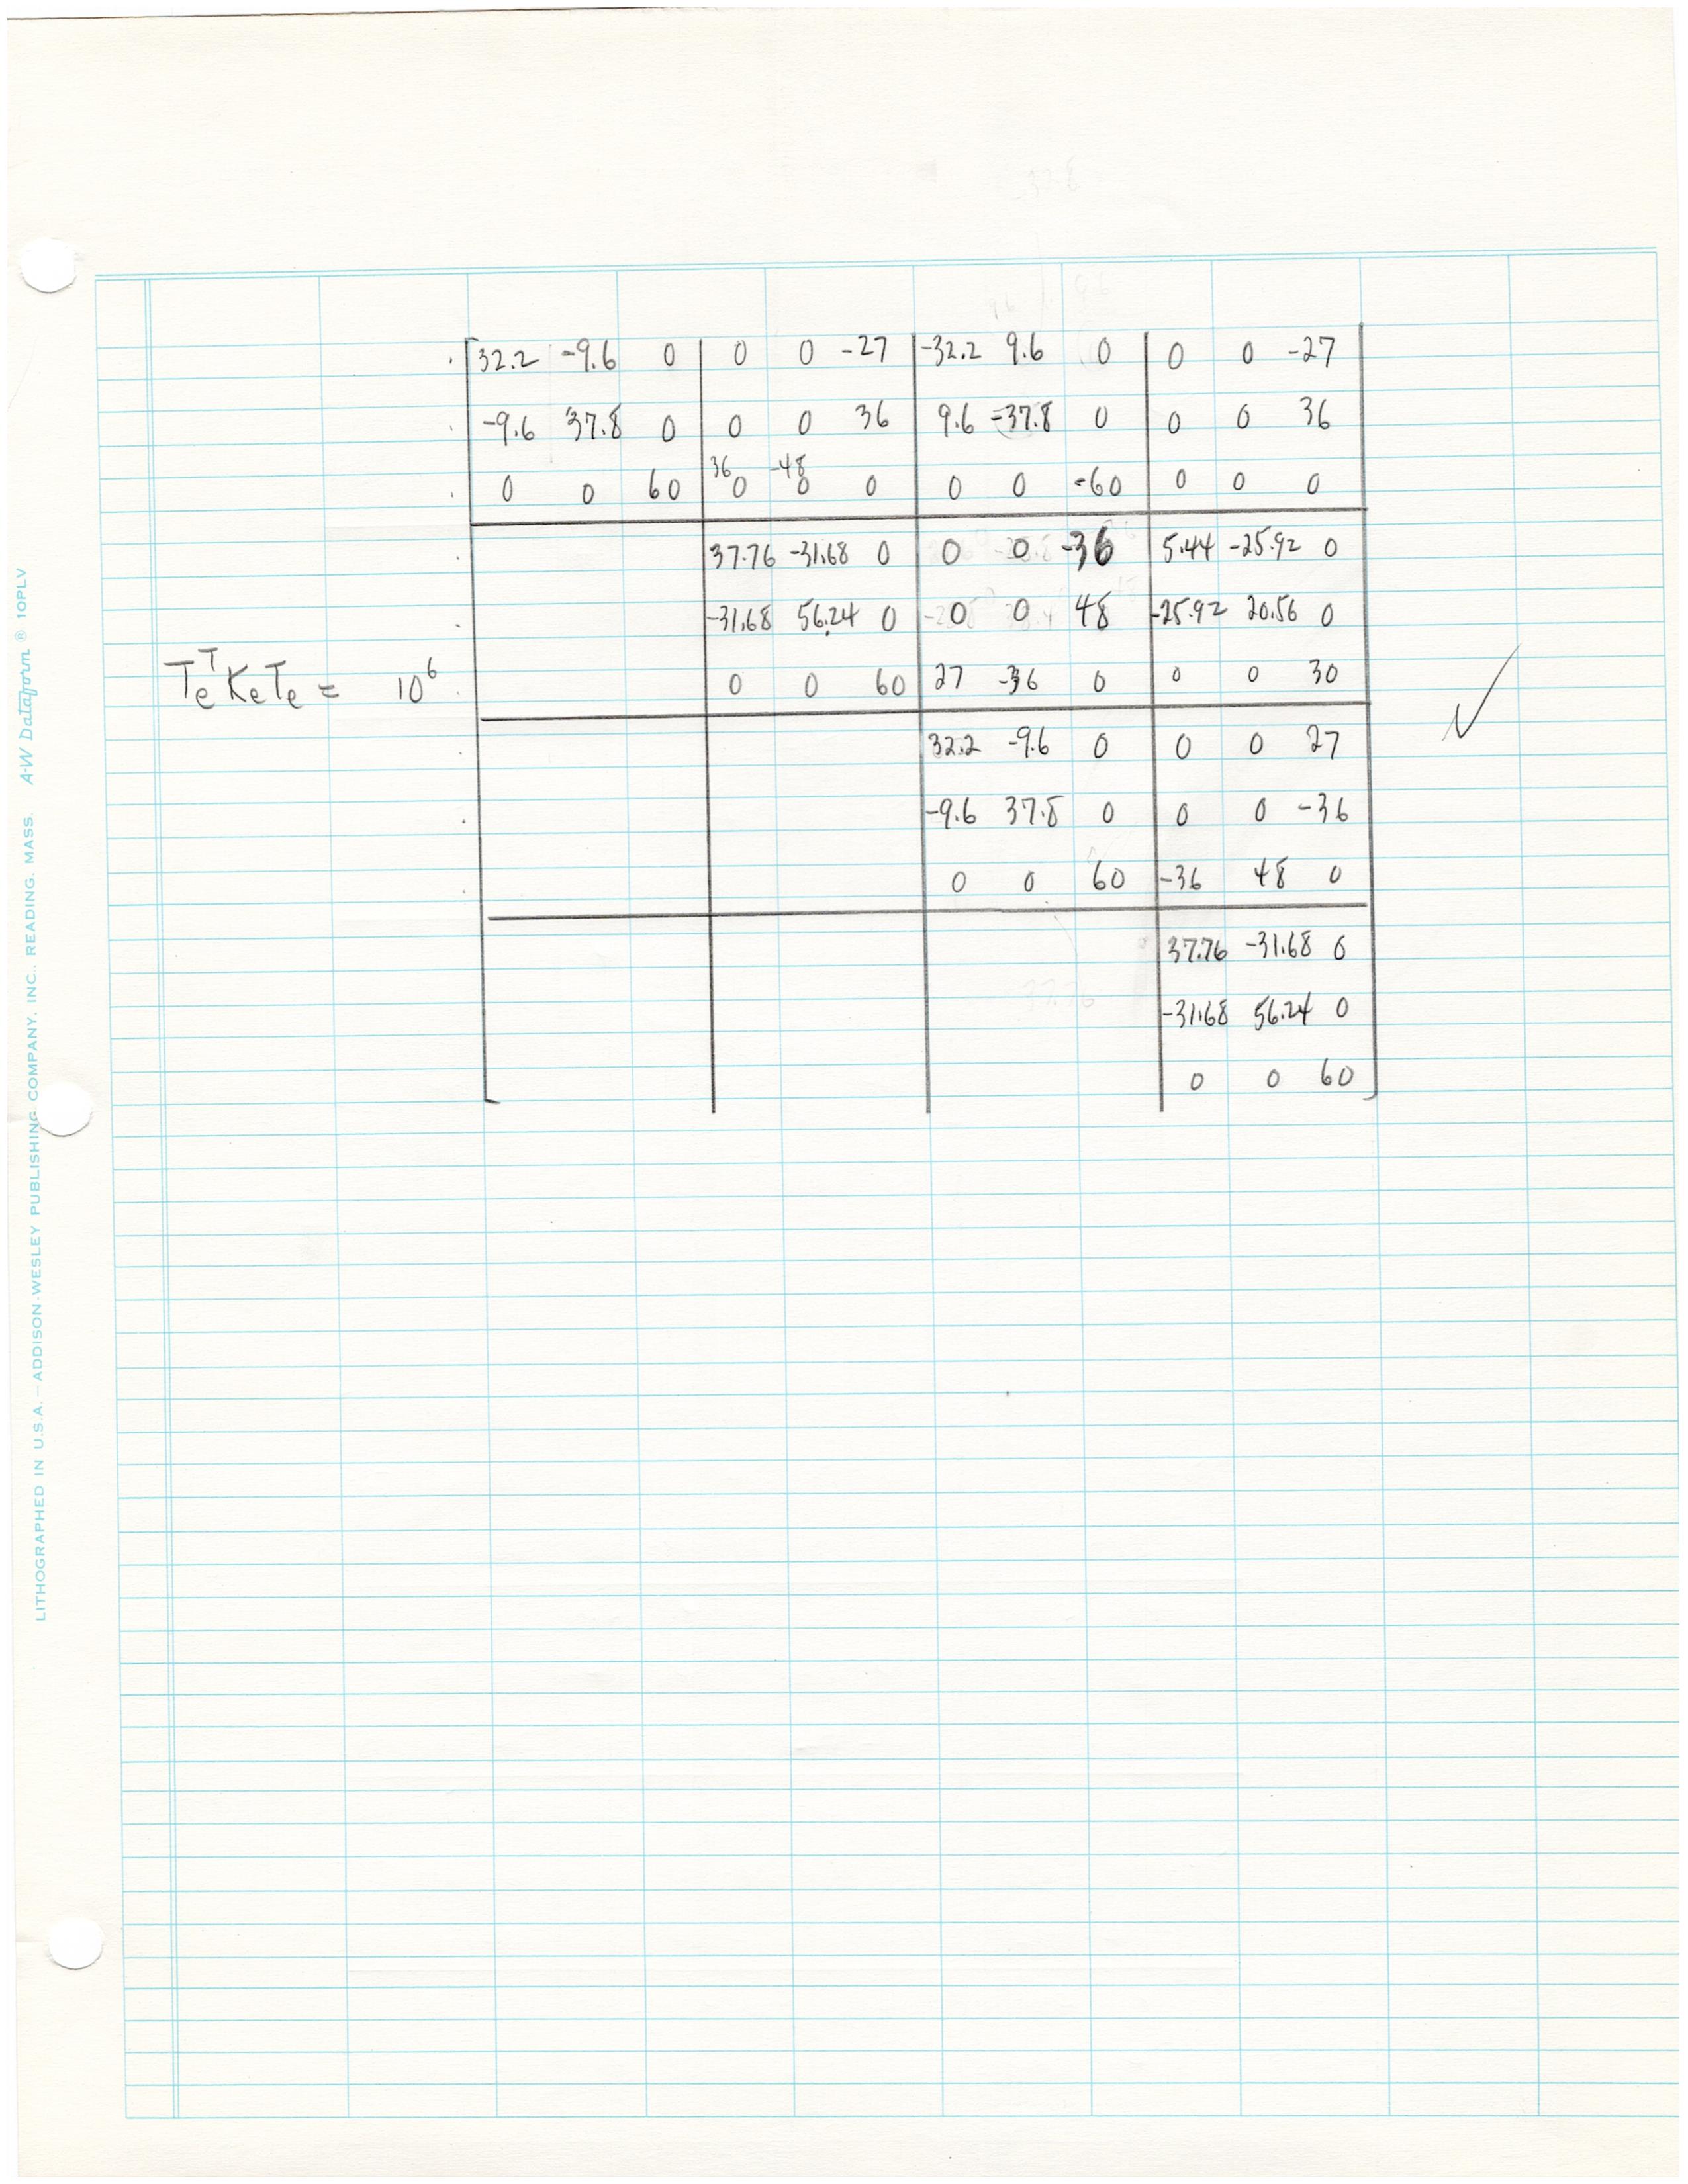 32.2 -9.6 0 0 0 -27 -32.2 9.6 0 0 0 -27
-9.6 37.8 0 0 0 36 9.6 -37.8 0 0 0 36
36 -48
0 0 60 0 0 0 0 0 -60 0 0 0
37.76 -31.68 0 0 0 -36 5.44 -25.92 0
-31.68 56.24 0 0 0 48 -25.92 20.56 0
TeᵀKeTe = 10⁶ 0 0 60 27 -36 0 0 0 30
32.2 -9.6 0 0 0 27
-9.6 37.8 0 0 0 -36
0 0 60 -36 48 0
37.76 -31.68 0
-31.68 56.24 0
0 0 60
✓
LITHOGRAPHED IN U.S.A. — ADDISON-WESLEY PUBLISHING COMPANY, INC., READING, MASS A-W Dataform ® 10PLV